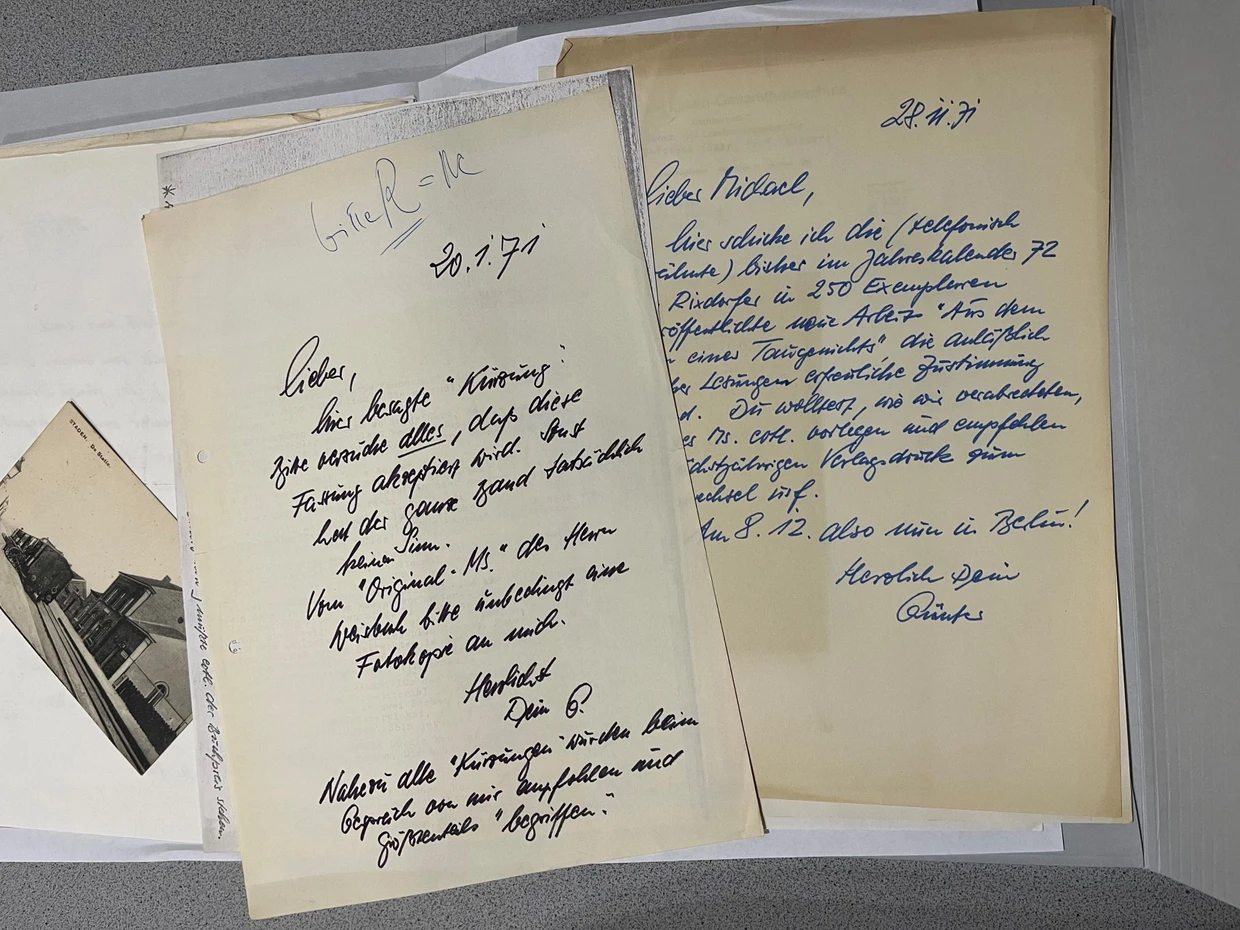 STADEN. De Statie.
bitte R = M
20.1.71
Lieber,
hier besagte "Kürzung".
Bitte versuche alles, daß diese
Fassung akzeptiert wird. Sonst
hat der ganze Band tatsächlich
keinen Sinn.
Vom "Original-Ms." des Herrn
Weisbach bitte unbedingt eine
Fotokopie an mich.
Herzlichst
Dein G.
Nahezu alle "Kürzungen" wurden beim
Gespräch von mir empfohlen und
größtenteils "begriffen".
müßte evtl. der Buchpreis stehen.
28.11.71
Lieber Michael,
hier schicke ich die (telefonisch
ähnte) bisher im Jahreskalender 72
Rixdorfer in 250 Exemplaren
öffentlichte neue Arbeit "Aus dem
einer Taugenichts" die anläßlich
er Lesungen erfreuliche Zustimmung
d. Du wolltest, wie wir verabredeten,
es Ms. evtl. vorlegen und empfehlen
chstjährigen Verlagsdruck zum
echsel usf.
Am 8.12. also nun in Berlin!
Herzlich Dein
Günter